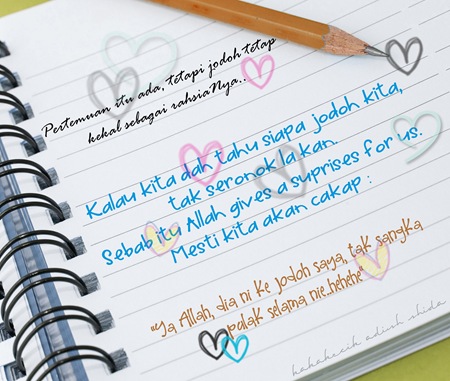 Pertemuan itu ada, tetapi jodoh tetap
kekal sebagai rahsiaNya..
Kalau kita dah tahu siapa jodoh kita,
tak seronok la kan.
Sebab itu Allah gives a suprises for us.
Mesti kita akan cakap :
"Ya Allah, dia ni ke jodoh saya, tak sangka
palak selama nie..hehehe"